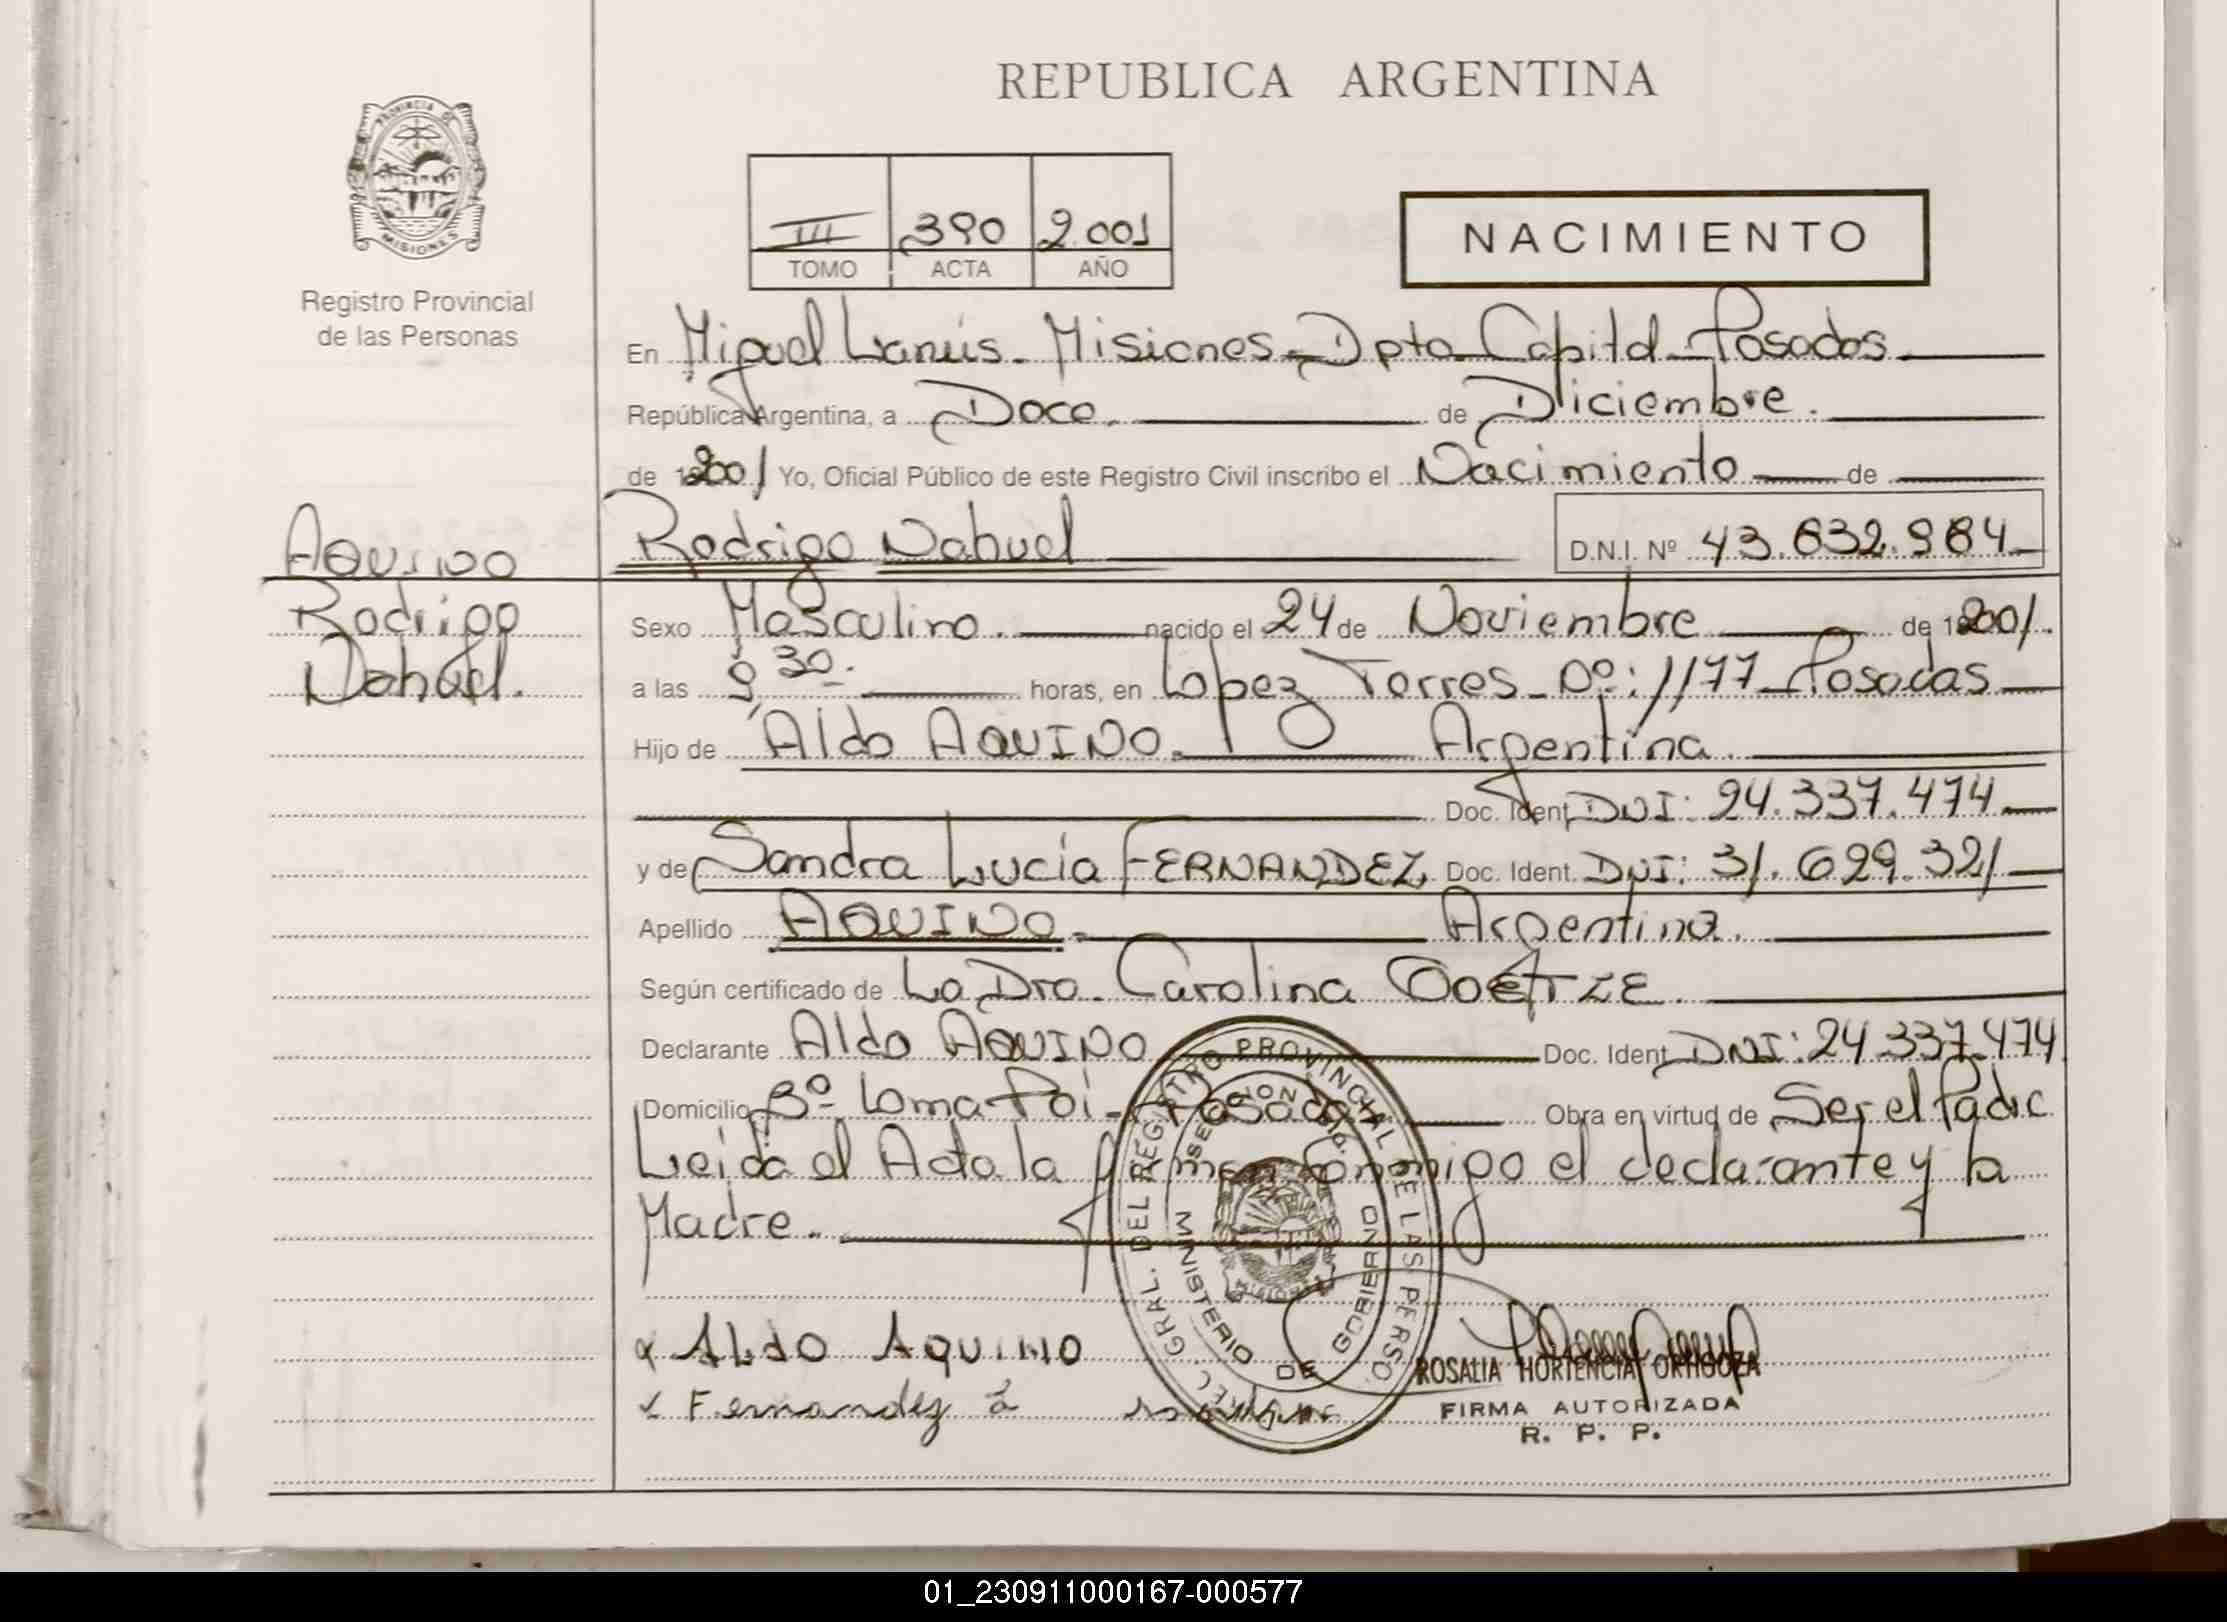 REPUBLICA ARGENTINA
PROVINCIA DE
MISIONES
Registro Provincial
de las Personas
III 390 2.001
TOMO ACTA AÑO
NACIMIENTO
En Miguel Lanús - Misiones - Dpto Capital - Posadas
República Argentina, a Doce. de Diciembre.
de 2001 Yo, Oficial Público de este Registro Civil inscribo el Nacimiento de
AQUINO
Rodrigo
Nahuel.
Rodrigo Nahuel D.N.I. Nº 43.632.984
Sexo Masculino. nacido el 24 de Noviembre de 2001.
a las 9,30. horas, en Lopez Torres - Nº: 1177 - Posadas
Hijo de Aldo AQUINO. Argentina.
Doc. Ident. DNI: 24.337.474
y de Sandra Lucía FERNANDEZ Doc. Ident. DNI: 31.629.321
Apellido AQUINO. Argentina.
Según certificado de La Dra. Carolina GOETZE.
Declarante Aldo AQUINO Doc. Ident. DNI: 24.337.474
Domicilio Bº Loma Poi - Posadas Obra en virtud de Ser el Padre
Leida el Acta la firman conmigo el declarante y la
Madre.
DIREC. GRAL. DEL REGISTRO PROVINCIAL DE LAS PERSO.
MINISTERIO DE GOBIERNO
ALDO AQUINO
Fernandez
ROSALIA HORTENCIA ORTIGOZA
FIRMA AUTORIZADA
R. P. P.
01_230911000167-000577